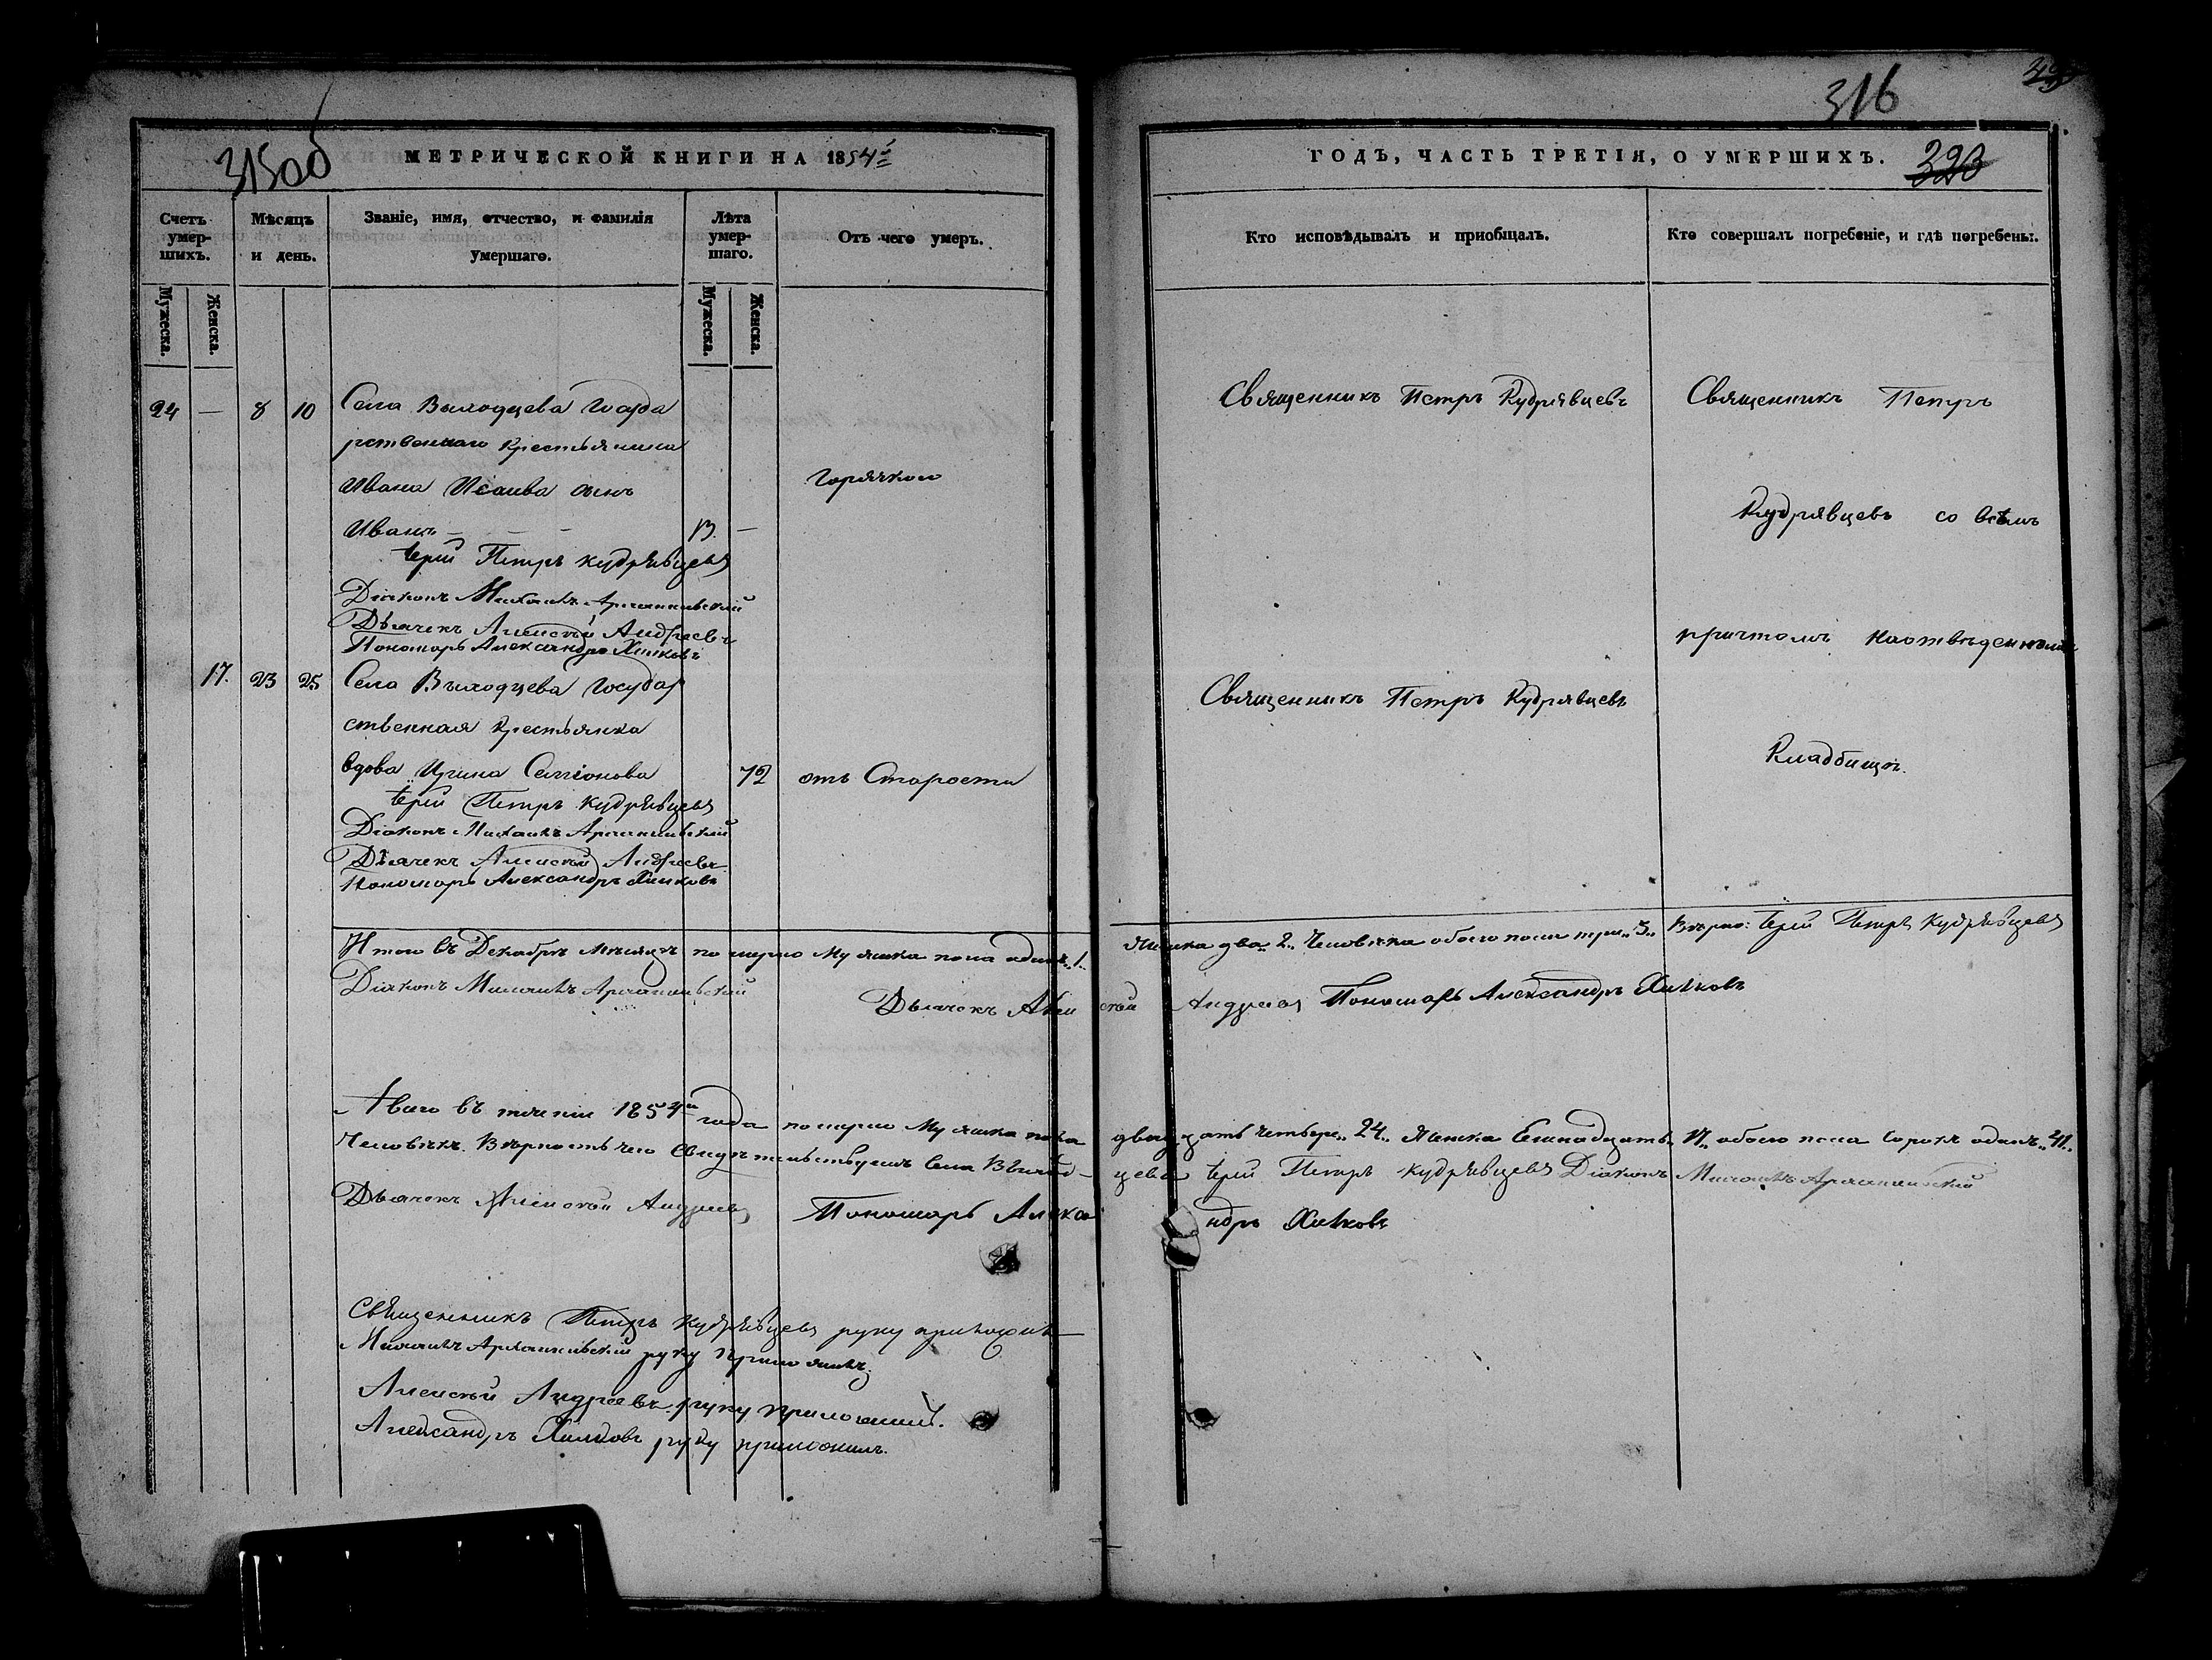 315об
МЕТРИЧЕСКОЙ КНИГИ НА 1854й
Счетъ умер-шихъ.
Мѣсяцъ и день.
Званіе, имя, отчество, и фамилія умершаго.
Лѣта умер-шаго.
Отъ чего умеръ.
Мужеска.
Женска.
Мужеска.
Женска.
24 — 8 10 Села Выходцева Госуда
рственнаго крестьянина
Ивана Исаива сынъ
горячкою
Иванъ — — — 13. —
Іерей Петръ Кудрявцевъ
Діаконъ Михаилъ Архангельскій
Дьячекъ Алексѣй Андреевъ
Пономарь Александръ Хилковъ
17. 23 25 Села Выходцева Государ
ственная крестьянка
вдова Ирина Семіонова 72 отъ Старости
Іерей Петръ Кудрявцевъ
Діаконъ Михаилъ Архангельскій
Дьячекъ Алексѣй Андреевъ
Пономарь Александръ Хилковъ
Итого въ Декабрѣ Мѣсяцѣ померло Мужеска пола одинъ „1„
Діаконъ Михаилъ Архангельскій
Дьячекъ Алек
Авсего въ теченіи 1854го года померло Мужеска пола
Человѣкъ. Вѣрность чего свидѣтельствуемъ Села Выход-
Дьячекъ Алексѣй Андреевъ Пономарь Алекса
Священникъ Петръ Кудрявцевъ руку приложилъ
Михаилъ Архангельскій руку приложилъ
Алексѣй Андреевъ руку приложилъ.
Александръ Хилковъ руку приложилъ.
316
ГОДЪ, ЧАСТЬ ТРЕТІЯ, О УМЕРШИХЪ.
Кто исповѣдывалъ и пріобщалъ.
Кто совершалъ погребеніе, и гдѣ погребены.
Священникъ Петръ Кудрявцевъ
Священникъ Петръ
Кудрявцевъ со всѣмъ
причтомъ наотведенномъ
Кладбищѣ.
Священникъ Петръ Кудрявцевъ
Женска два „2„ Человѣка обоего пола три „3„ Вѣрно: Іерей Петръ Кудрявцевъ
сѣй Андреевъ Пономарь Александръ Хилковъ
двадцать четыре „24„ Женска Семнадцать „17„ обоего пола Сорокъ одинъ „41„
цева Іерей Петръ Кудрявцевъ Діаконъ Михаилъ Архангельскій
ндръ Хилковъ